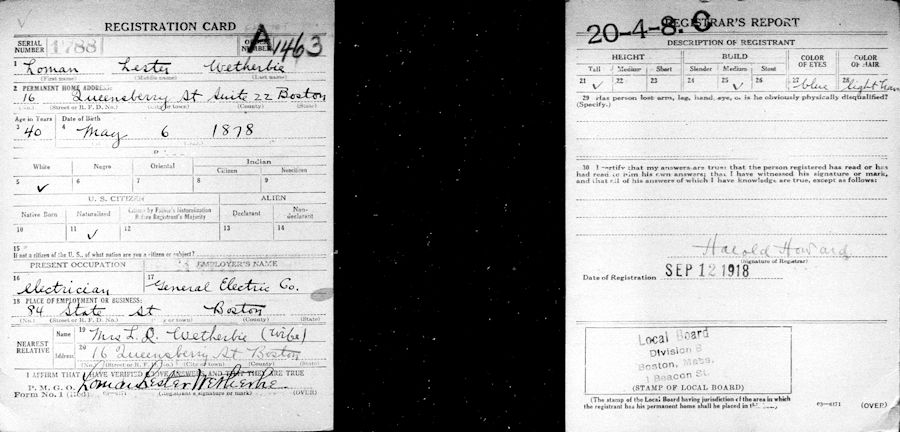 REGISTRATION CARD
SERIAL NUMBER 1788
ORDER NUMBER A1463
1 Loman Lester Wetherbie
(First name) (Middle name) (Last name)
2 PERMANENT HOME ADDRESS:
16 Queensberry St Suite 22 Boston
(No.) (Street or R. F. D. No.) (City or town) (County) (State)
Age in Years Date of Birth
3 40 4 May 6 1878
White Negro Oriental Indian
Citizen Noncitizen
5 ✓ 6 7 8 9
U. S. CITIZEN ALIEN
Native Born Naturalized Citizen by Father's Naturalization Before Registrant's Majority Declarant Non-declarant
10 11 ✓ 12 13 14
15
If not a citizen of the U. S., of what nation are you a citizen or subject?
PRESENT OCCUPATION EMPLOYER'S NAME
16 electrician 17 General Electric Co.
18 PLACE OF EMPLOYMENT OR BUSINESS:
84 State St Boston
(No.) (Street or R. F. D. No.) (City or town) (County) (State)
NEAREST RELATIVE
Name 19 Mrs L. Wetherbie (Wife)
Address 20 16 Queensberry St Boston
(No.) (Street or R. F. D. No.) (City or town) (County) (State)
I AFFIRM THAT I HAVE VERIFIED ABOVE ANSWERS AND THAT THEY ARE TRUE
P. M. G. O.
Form No. 1 (Red) Loman Lester Wetherbie
(Registrant's signature or mark) (OVER)
REGISTRAR'S REPORT
20-4-8. C
DESCRIPTION OF REGISTRANT
HEIGHT BUILD COLOR OF EYES COLOR OF HAIR
Tall Medium Short Slender Medium Stout
21 ✓ 22 23 24 25 ✓ 26 27 blue 28 light
29 Has person lost arm, leg, hand, eye, or is he obviously physically disqualified?
(Specify.)
30 I certify that my answers are true; that the person registered has read or has
had read to him his own answers; that I have witnessed his signature or mark,
and that all of his answers of which I have knowledge are true, except as follows:
Harold Howard
(Signature of Registrar)
Date of Registration SEP 12 1918
Local Board
Division 8
Boston, Mass.
1 Beacon St.
(STAMP OF LOCAL BOARD)
(The stamp of the Local Board having jurisdiction of the area in which
the registrant has his permanent home shall be placed in this box.)
03—6171 (OVER)